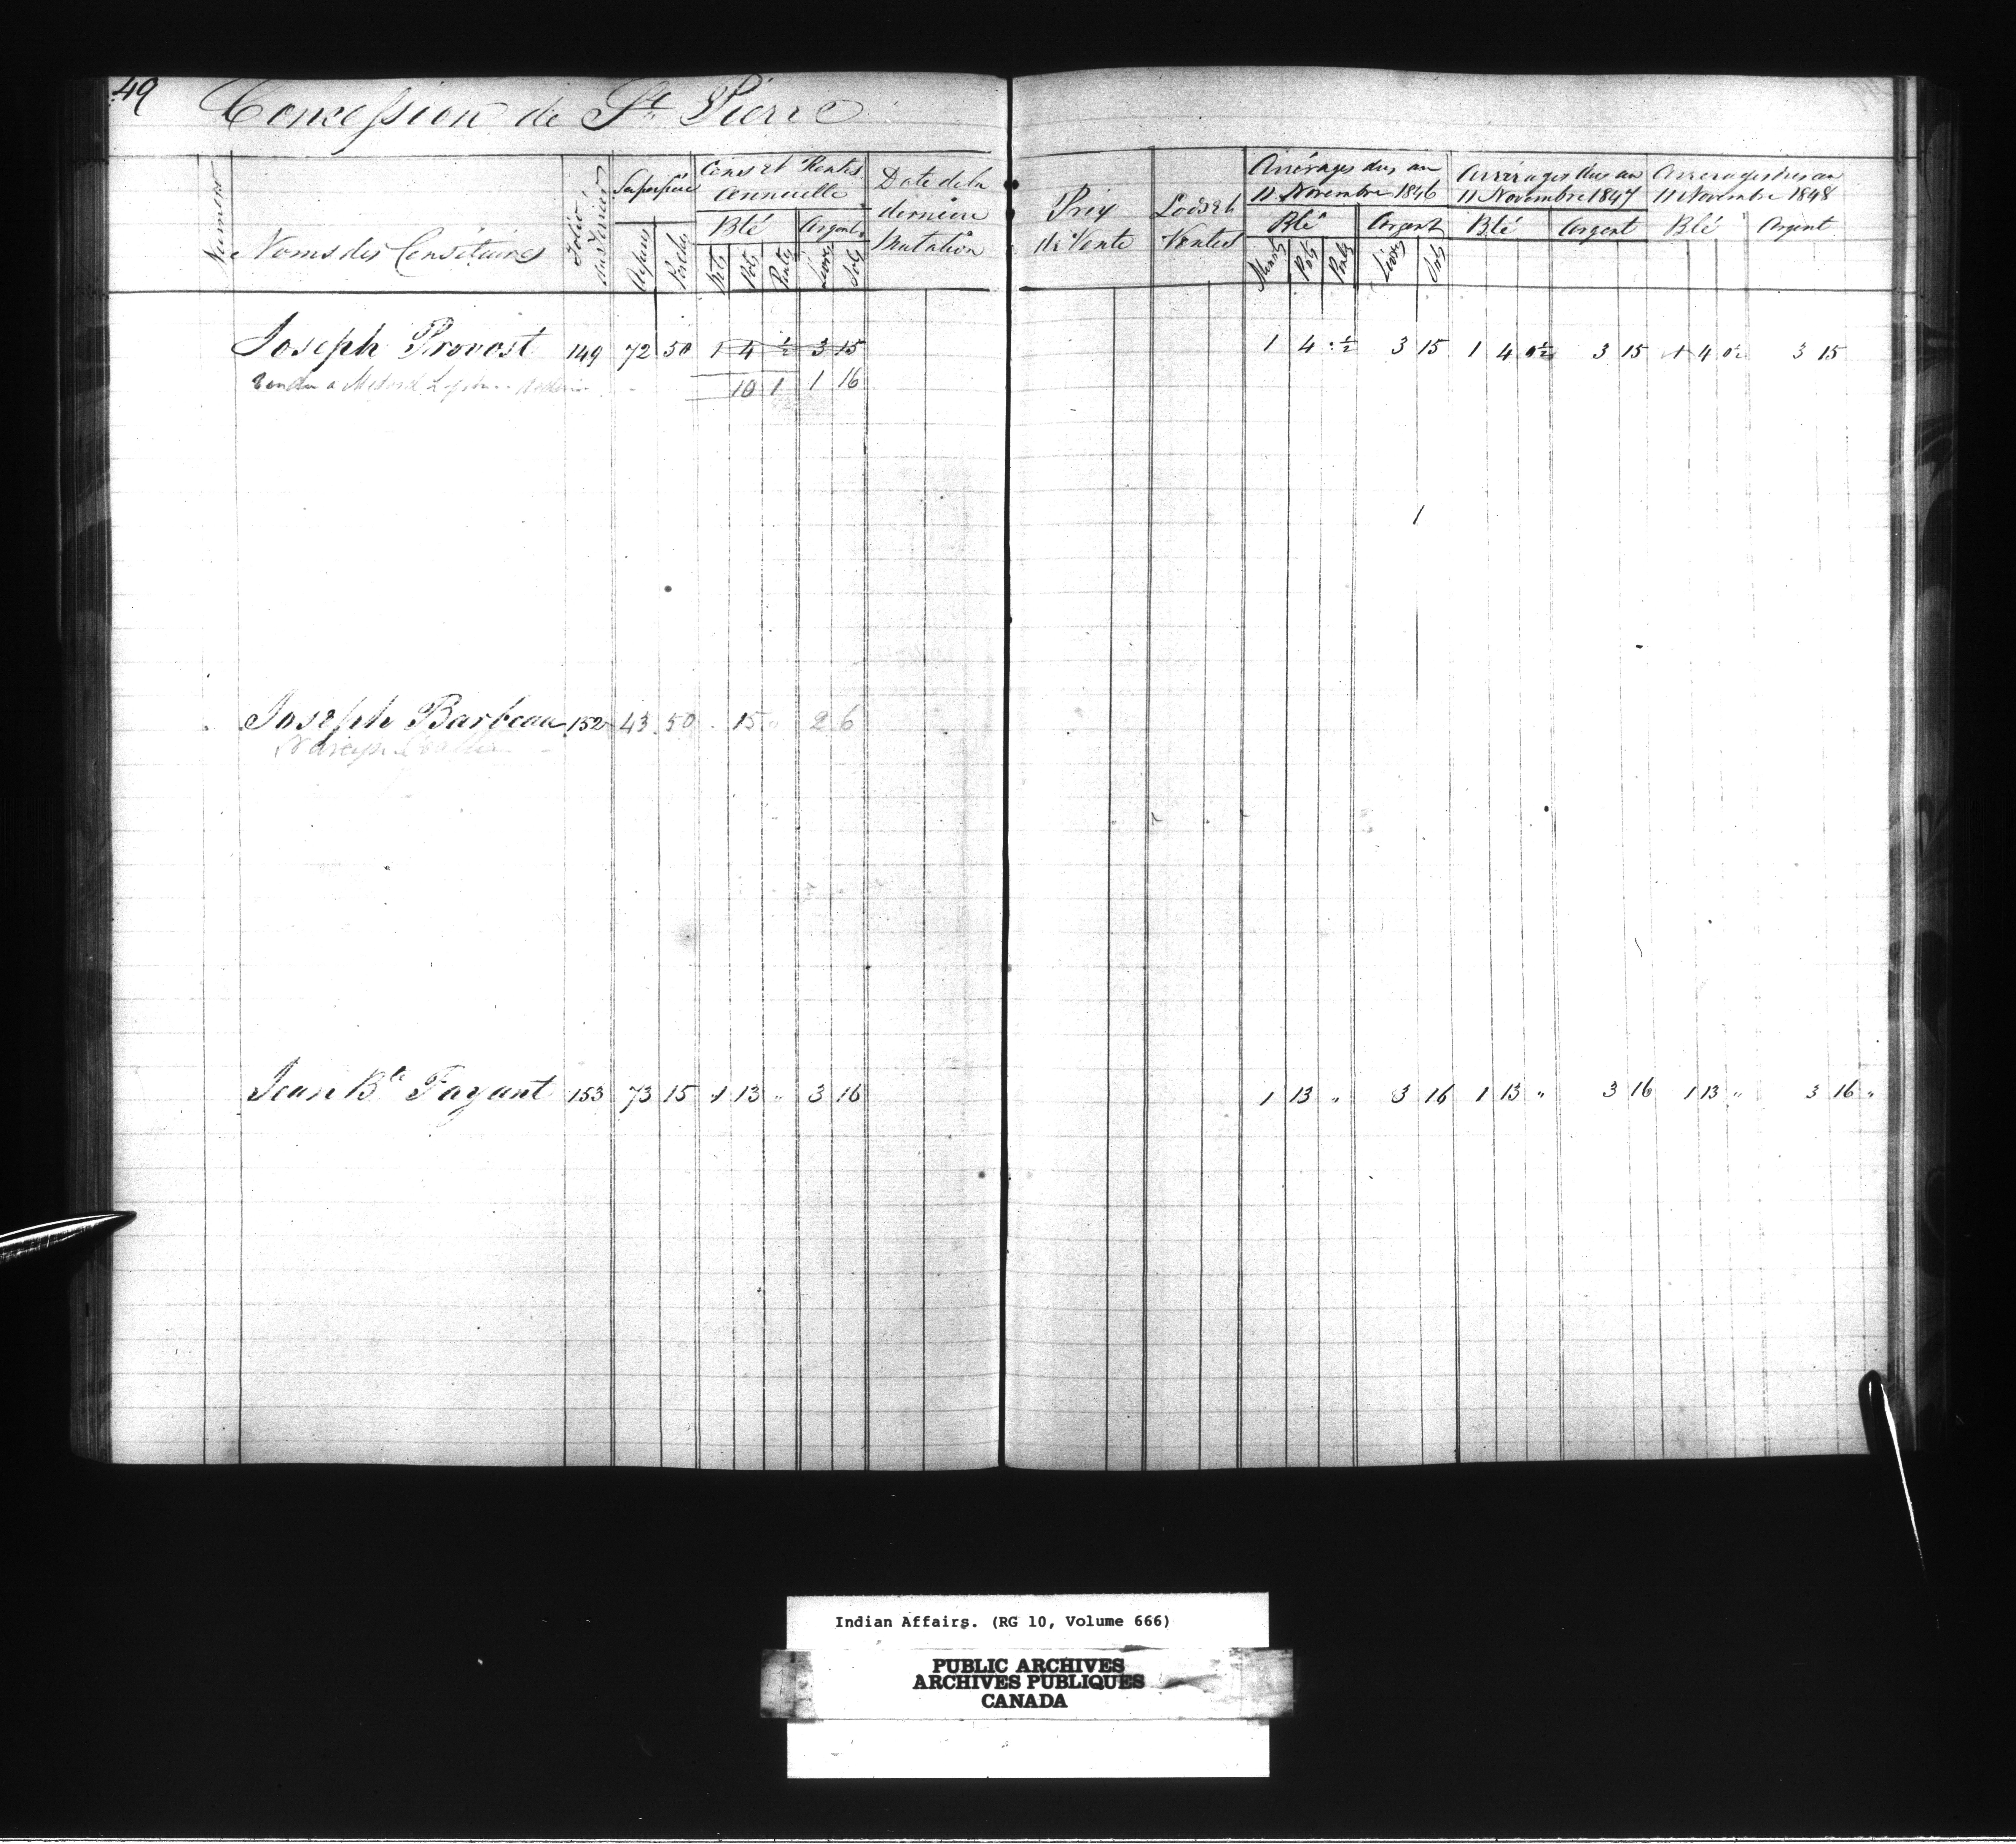 49
Concession de St Pierre
Numero
Noms des Censitaires
Folio du Terrier
Superficie
Arpens
Perches
Cens et Rentes Annuelle
Blé
Argent
Mts
Pots
Pintes
Livres
Sols
Date de la derniere Mutation
Prix de Vente
Lods et Ventes
Arrérages dus au 11 Novembre 1846
Blé
Argent
Minots
Pots
Pintes
Livres
Sols
Arrérages dus au 11 Novembre 1847
Blé
Argent
Arrerages dus au 11 Novembre 1848
Blé
Argent
Joseph Provost 149 72 50 1 4 ½ 3 15 1 4 ½ 3 15 1 4 0½ 3 15 1 4 0½ 3 15
Vendu a 10 1 1 16
Joseph Barbeau 152 43 50 15 " 2 6
Jean Bte Fayant 153 73 15 1 13 " 3 16 1 13 " 3 16 1 13 " 3 16 1 13 " 3 16 "
Indian Affairs. (RG 10, Volume 666)
PUBLIC ARCHIVES
ARCHIVES PUBLIQUES
CANADA